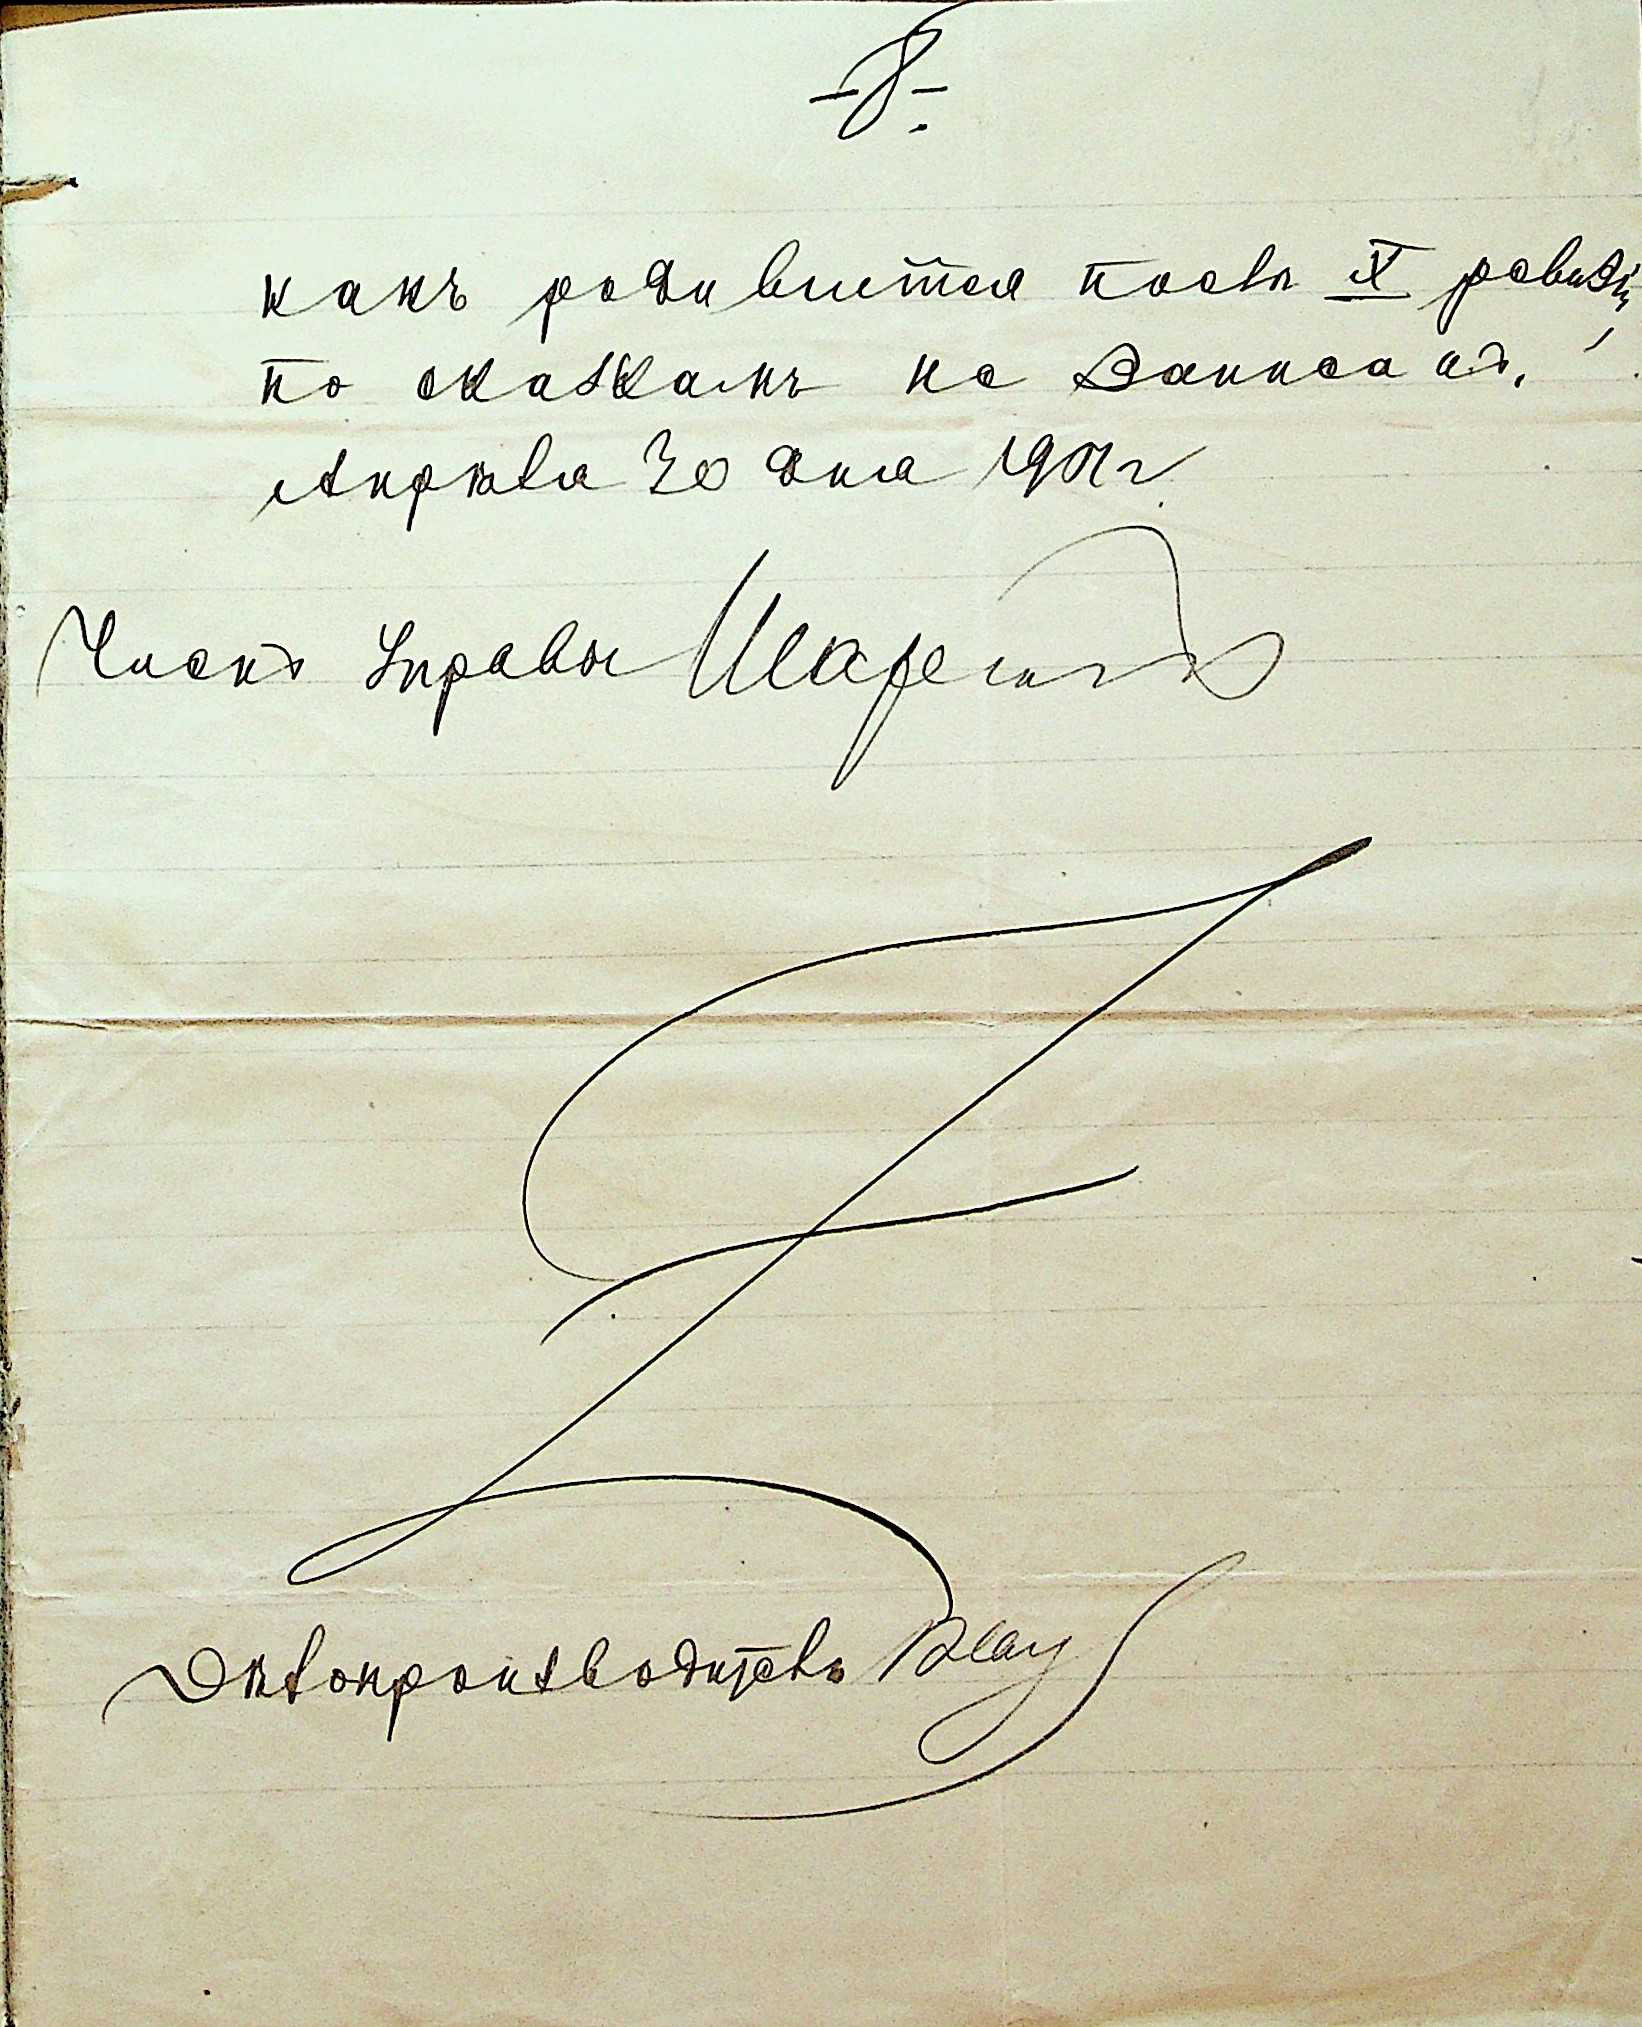 -8-.
какъ родившійся послѣ X ревизіи,
по сказкамъ не записанъ.
Апрѣля 30 дня 1901 г
Членъ Управы
Дѣлопроизводитель